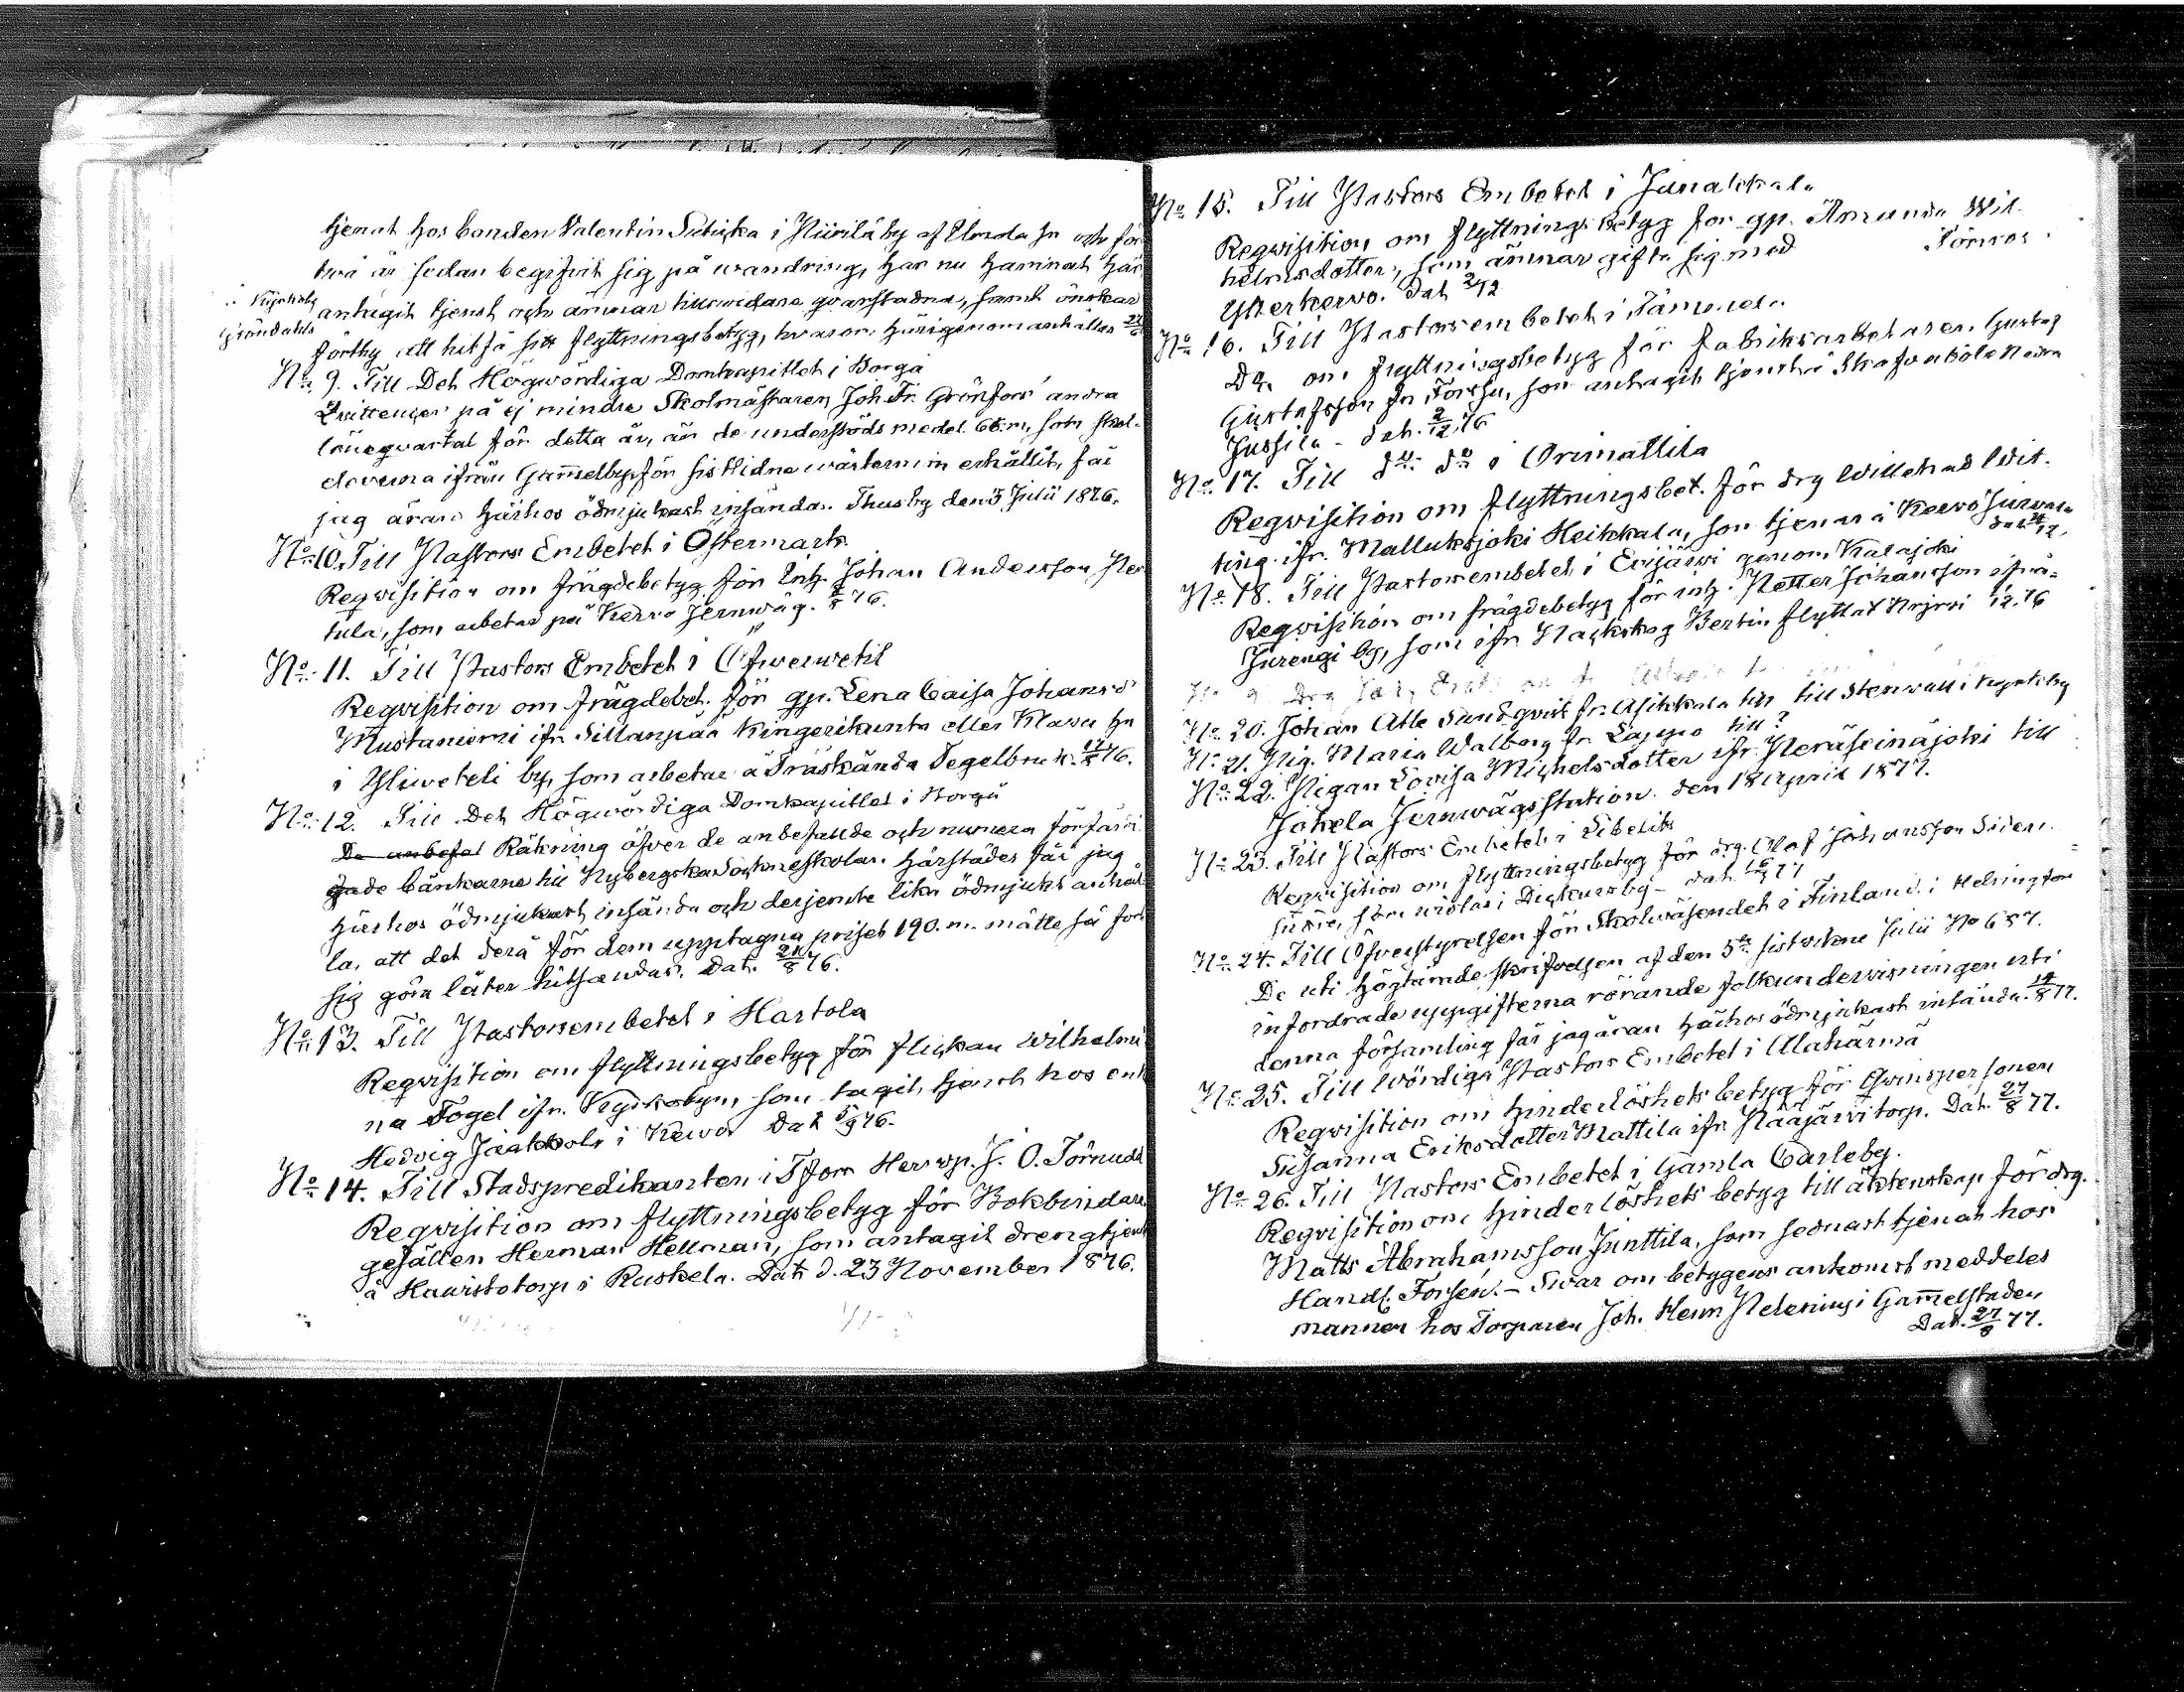 tjenat hos bonden Valentin i by af hn och för
två år sedan begifvit sig på wandring, har nu hamnat här
antagit tjenst och ämnar tillswidare qvarstadna, samt önskar
förthy att hitfå sitt flyttningsbetyg, hvarom härigenom anhålles
No 9. Till Det Högwördiga Domkapitlet i Borgå
Qvittenser på ej mindre Skolmästaren Joh. Fr. Grönfors' andra
löneqvartal för detta år, än de understöds medel 66 m, som skol-
eleverna ifrån Gammelby för sistlidne wårtermin erhållit, får
jag äran härhos ödmjukast insända. Thusby den 3 Julii 1876.
No 10. Till Pastors Embetet i Östermark.
Reqvisition om frägdebetyg för Johan Andersson
tula, som arbetar på Kerwo Jernwäg. 76.
No 11. Till Pastors Embetet i Öfwerwetil
Reqvisition om frägdebet. för qp. Lena Caisa Johansd
Mustaniemi ifr. Sillanpää Kingerikunta eller hn
i Yliweteli by, som arbetar å Träskända Tegelbruk. 76.
No 12. Till Det Högwördiga Domkapitlet i Borgå
De anbefal Räkning öfver de anbefallde och numera förfärdi
gade bänkarne till Nybergska Socknskolan härstädes får jag
härhos ödmjukast insända och derjemte lika ödmjukt anhål
la, att det derå för dem upptagna priset 190. m. måtte så fort
sig göra låter hitsändas. Dat. 21/8 76.
No 13. Till Pastorsembetet i Hartola
Reqvisition om flyttningsbetyg för flickan Wilhelmi
na Fogel ifr. Kyrkobyn, som tagit tjenst hos enk
Hedvig Jaakkola i Kerwo Dat 5/9 76.
No 14. Till Stadspredikanten i Hfors Herr J. O. Törnudd
Reqvisition om flyttningsbetyg för Bokbindare
gesällen Herman Hellman, som antagit drengtjenst
å Hauistotorp i Ruskela. Dat. d. 23 November 1876.
No 15. Till Pastors Embetet i Janakkala
Reqvisition om flyttnings betyg för qp. Amanda Wil-
helmsdotter, som ämnar gifta sig med
Ytterkerwo. Dat 2/12
No 16. Till Pastorsembetet i Tammela
Do om flyttningsbetyg för fabriksarbetaren Gustaf
Gustafsson fr. Forssa, som antagit tjenst i Skafvaböle Nedra
Jussila - dat. 2/12 76
No 17. Till do do i Orimattila
Reqvisition om flyttningsbet. för drg Willehad Wit-
ting ifr. Mallukjoki Heikkala, som tjenar å Kerwo
No 18. Till Pastorsembetet i Evijärwi genom Kalajoki
Reqvisition om frägdebetyg för inh. Petter Johansson ifrån
by, som ifr. Backskog Bertin flyttat 12. 76
No 20. Johan Atle Sundqvist fr. Asikkala till Stenwall i Kyrkoby
No 21. Pig. Maria Walborg fr. Lappo till?
No 22. Pigan Lovisa Michelsdotter ifr. Peräseinäjoki till
Jokela Jernwägsstation. den 18 April 1877.
No 23. Till Pastors Embetet i Libelits
Reqvisition om flyttningsbetyg för drg. Olof Johansson
som wistas i Dickursby - dat. 77
No 24. Till Öfverstyrelsen för Skolwäsendet i Finland i Helsingfors
De uti högtärade skrifvelsen af den 5te sistwikne Julii No 657.
infordrade uppgifterna rörande folkundervisningen uti
denna församling får jag äran härhos ödmjukast insända. 14/8 77.
No 25. Till Wördiga Pastors Embetet i Alahärmä
Reqvisition om hinderlöshets betyg för Qwinspersonen
Susanna Eriksdotter Mattila ifr. Haapajärwi torp. Dat. 27/8 77.
No 26. Till Pastors Embetet i Gamla Carleby.
Reqvisition om hinderlöshets betyg till äktenskap för drg.
Matts Abrahamsson Junttila, som sednast tjenat hos
Handl. Forsén. - Swar om betygens ankomst meddeles
mannen hos Torparen Joh. Herm Helenius i Gammelstaden
Dat. 27/8 77.